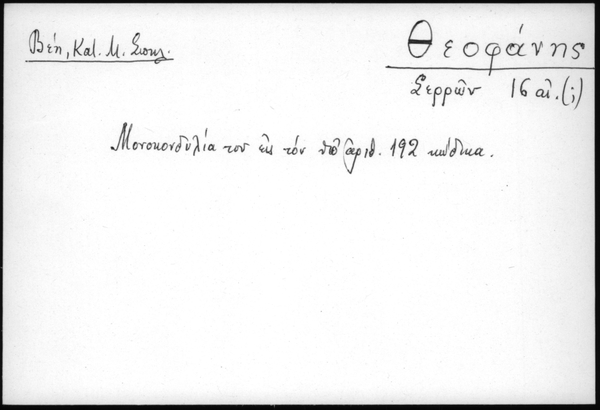 Βέη, Κατ. Μ. Σισκγ.
Θεοφάνης
Σερρῶν 16 αἰ. (;)
Μονοκονδυλία του εἰς τόν ὑπ' ἀριθ. 192 κώδικα.